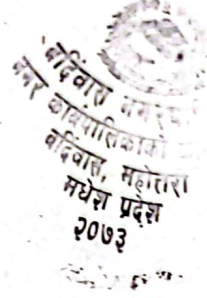 बर्दिवास नगर
नगर कार्यपालिकाको
बर्दिवास, महोत्तरी
मधेश प्रदेश
२०७३